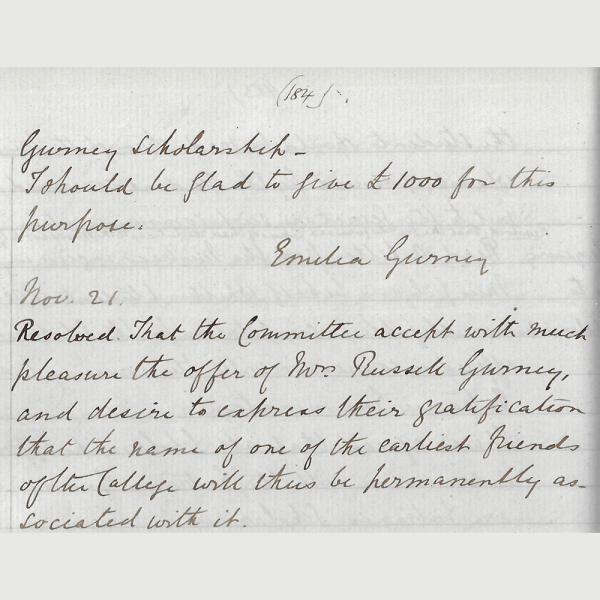 (184)
Gurney Scholarship –
I should be glad to give £1000 for this
purpose.
Emelia Gurney
Nov. 21.
Resolved. That the Committee accept with much
pleasure the offer of Mrs Russell Gurney,
and desire to express their gratification
that the name of one of the earliest friends
of the College will thus be permanently as-
sociated with it.